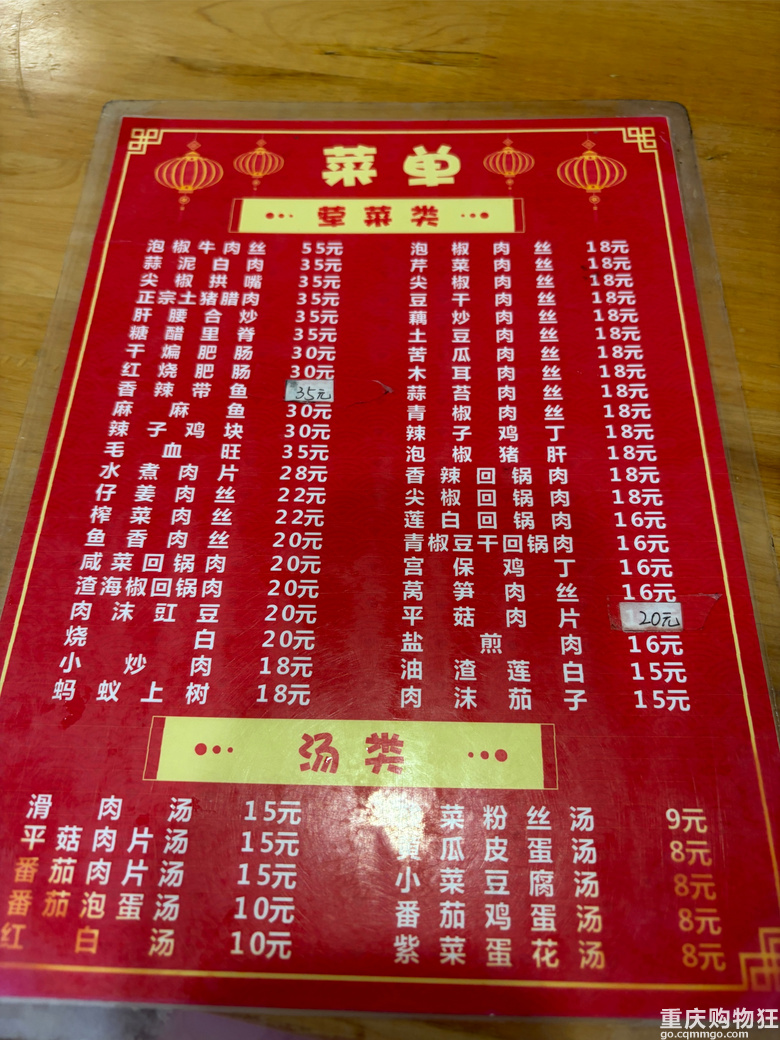 菜单
荤菜类
泡椒牛肉丝 55元
蒜泥白肉 35元
尖椒拱嘴 35元
正宗土猪腊肉 35元
肝腰合炒 35元
糖醋里脊 35元
干煸肥肠 30元
红烧肥肠 30元
香辣带鱼 35元
麻麻鱼 30元
辣子鸡块 30元
毛血旺 35元
水煮肉片 28元
仔姜肉丝 22元
榨菜肉丝 22元
鱼香肉丝 20元
咸菜回锅肉 20元
渣海椒回锅肉 20元
肉沫豇豆 20元
烧白 20元
小炒肉 18元
蚂蚁上树 18元
泡椒肉丝 18元
芹菜肉丝 18元
尖椒肉丝 18元
豆干肉丝 18元
藕炒肉丝 18元
土豆肉丝 18元
苦瓜肉丝 18元
木耳肉丝 18元
蒜苔肉丝 18元
青椒肉丝 18元
辣子鸡丁 18元
泡椒猪肝 18元
香辣回锅肉 18元
尖椒回锅肉 18元
莲白回锅肉 16元
青椒豆干回锅肉 16元
宫保鸡丁 16元
莴笋肉丝 16元
平菇肉片 20元
盐煎肉 16元
油渣莲白 15元
肉沫茄子 15元
汤类
滑肉汤 15元
平菇肉片汤 15元
番茄肉片汤 15元
番茄泡蛋汤 10元
红白汤 10元
菜粉丝汤 9元
黄瓜皮蛋汤 8元
小菜豆腐汤 8元
番茄鸡蛋汤 8元
紫菜蛋花汤 8元
重庆购物狂
go.cqmmgo.com